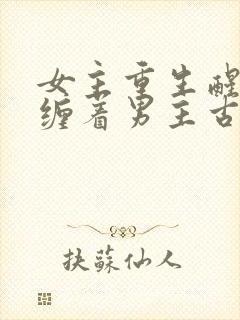 女主重生醒
缠着男主古
扶蘇仙人